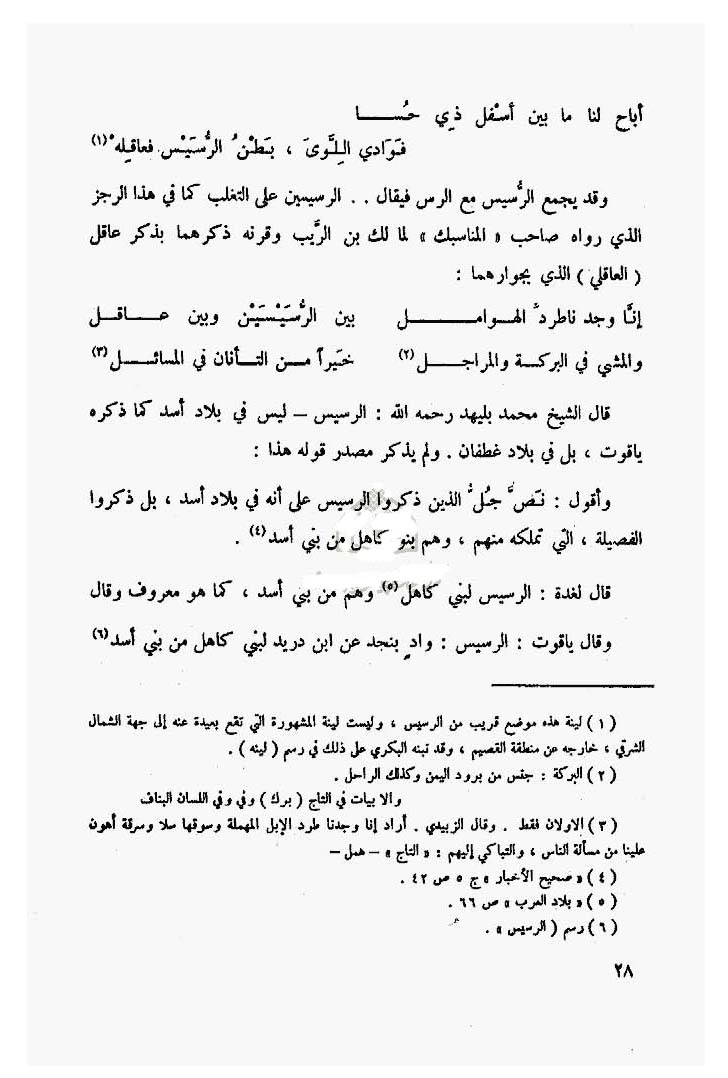 أباح لنا ما بين أسْفل ذي حُسـا
فَوَادي اللِّوىَ ، بَطْنُ الرُّسَيْس فعاقِلهْ (١)
وقد يجمع الرُّسيس مع الرس فيقال . . الرسيسين على التغلب كما في هذا الرجز
الذي رواه صاحب « المناسبك » لما لك بن الرَّيب وقرنه ذكرهما بذكر عاقل
( العاقلي ) الذي بجوارهما :
إنَّا وجد ناطردَ الهـوامـل بين الرُّسَيْسَيْن وبين عـاقـل
والمشي في البركـة والمراجـل (٢) خَيراً مـن التـأنان في المسائـل (٣)
قال الشيخ محمد بليهد رحمه الله : الرسيس – ليس في بلاد أسد كما ذكره
ياقوت ، بل في بلاد غطفان . ولم يذكر مصدر قوله هذا :
وأقول : نَصَّ جُلُّ الذين ذكروا الرسيس على أنه في بلاد أسد ، بل ذكروا
الفصيلة ، التي تملكه منهم ، وهم بنو كاهل من بني أسد (٤) .
قال لغدة : الرسيس لبني كاهل (٥) وهم من بني أسد ، كما هو معروف وقال
وقال ياقوت : الرسيس : وادٍ بنجد عن ابن دريد لبني كاهل من بني أسد (٦)
( ١ ) لينة هذه موضع قريب من الرسيس ، وليست لينة المشهورة التي تقع بعيدة عنه إلى جهة الشمال
الشرقي ، خارجه عن منطقة القصيم ، وقد تبنه البكري على ذلك في رسم ( لينه ) .
( ٢ ) البركة : جنس من برود اليمن وكذلك الراحل .
والا بيات في التاج ( برك ) وفي وفي اللسان البناف
( ٣ ) الاولان فقط . وقال الزبيدي . أراد إنا وجدنا طرد الإبل المهملة وسوقها سلا وسرقة أهون
علينا من مسألة الناس ، والتباكي إليهم : « التاج » – همل –
( ٤ ) « صحيح الأخبار » ج ٥ ص ٤٢ .
( ٥ ) « بلاد العرب » ص ٦٦ .
( ٦ ) رسم ( الرسيس » .
٢٨